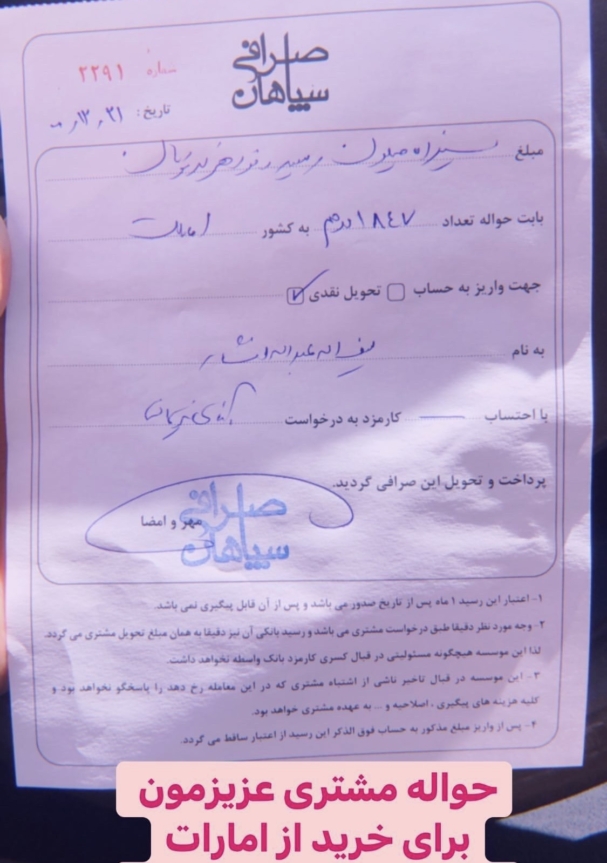 صرافی
سپاهان
شماره ۲۲۹۱
تاریخ: ۳۱،۱۳،۰۰
مبلغ سیزده میلیون
بابت حواله تعداد ۱۸۴۷ درهم به کشور امارات
جهت واریز به حساب تحویل نقدی
به نام
با احتساب کارمزد به درخواست
پرداخت و تحویل این صرافی گردید.
صرافی
مهر و امضا
سپاهان
۱- اعتبار این رسید ۱ ماه پس از تاریخ صدور می باشد و پس از آن قابل پیگیری نمی باشد.
۲- وجه مورد نظر دقیقا طبق درخواست مشتری می باشد و رسید بانکی آن نیز دقیقا به همان مبلغ تحویل مشتری می گردد.
لذا این موسسه هیچگونه مسئولیتی در قبال کسری کارمزد بانک واسطه نخواهد داشت.
۳- این موسسه در قبال تاخیر ناشی از اشتباه مشتری که در این معامله رخ دهد را پاسخگو نخواهد بود و
کلیه هزینه های پیگیری ، اصلاحیه و ... به عهده مشتری خواهد بود.
۴- پس از واریز مبلغ مذکور به حساب فوق الذکر این رسید از اعتبار ساقط می گردد.
حواله مشتری عزیزمون
برای خرید از امارات